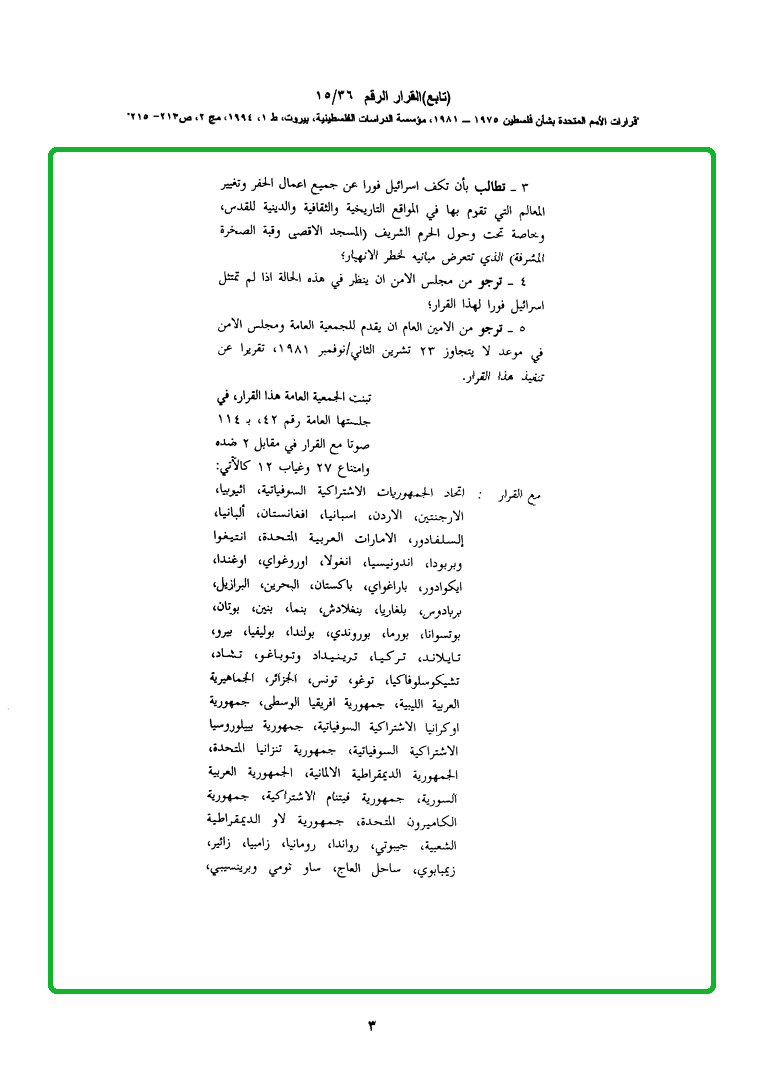 (تابع)القرار الرقم ١٥/٣٦
"قرارات الأمم المتحدة بشأن فلسطين ١٩٧٥ – ١٩٨١، مؤسسة الدراسات الفلسطينية، بيروت، ط ١، ١٩٩٤، مج ٢، ص٢١٣– ٢١٥"
٣ ـ تطالب بأن تكف اسرائيل فورا عن جميع اعمال الحفر وتغيير
المعالم التي تقوم بها في المواقع التاريخية والثقافية والدينية للقدس،
وخاصة تحت وحول الحرم الشريف (المسجد الاقصى وقبة الصخرة
المشرفة) الذي تتعرض مبانيه لخطر الانهيار؛
٤ ـ ترجو من مجلس الامن ان ينظر في هذه الحالة اذا لم تمتثل
اسرائيل فورا لهذا القرار؛
٥ ـ ترجو من الامين العام ان يقدم للجمعية العامة ومجلس الامن
في موعد لا يتجاوز ٢٣ تشرين الثاني/نوفمبر ١٩٨١، تقريرا عن
تنفيذ هذا القرار.
تبنت الجمعية العامة هذا القرار، في
جلستها العامة رقم ٤٢، بـ ١١٤
صوتا مع القرار في مقابل ٢ ضده
وامتناع ٢٧ وغياب ١٢ كالآتي:
مع القرار : اتحاد الجمهوريات الاشتراكية السوفياتية، اثيوبيا،
الارجنتين، الاردن، اسبانيا، افغانستان، ألبانيا،
إلسلفادور، الامارات العربية المتحدة، انتيغوا
وبربودا، اندونيسيا، انغولا، اوروغواي، اوغندا،
ايكوادور، باراغواي، باكستان، البحرين، البرازيل،
بربادوس، بلغاريا، بنغلادش، بنما، بنين، بوتان،
بوتسوانا، بورما، بوروندي، بولندا، بوليفيا، بيرو،
تايلاند، تركيا، ترينيداد وتوباغو، تشاد،
تشيكوسلوفاكيا، توغو، تونس، الجزائر، الجماهيرية
العربية الليبية، جمهورية افريقيا الوسطى، جمهورية
اوكرانيا الاشتراكية السوفياتية، جمهورية بييلوروسيا
الاشتراكية السوفياتية، جمهورية تنزانيا المتحدة،
الجمهورية الديمقراطية الالمانية، الجمهورية العربية
السورية، جمهورية فيتنام الاشتراكية، جمهورية
الكاميرون المتحدة، جمهورية لاو الديمقراطية
الشعبية، جيبوتي، رواندا، رومانيا، زامبيا، زائير،
زيمبابوي، ساحل العاج، ساو تومي وبرينسيبي،
٣